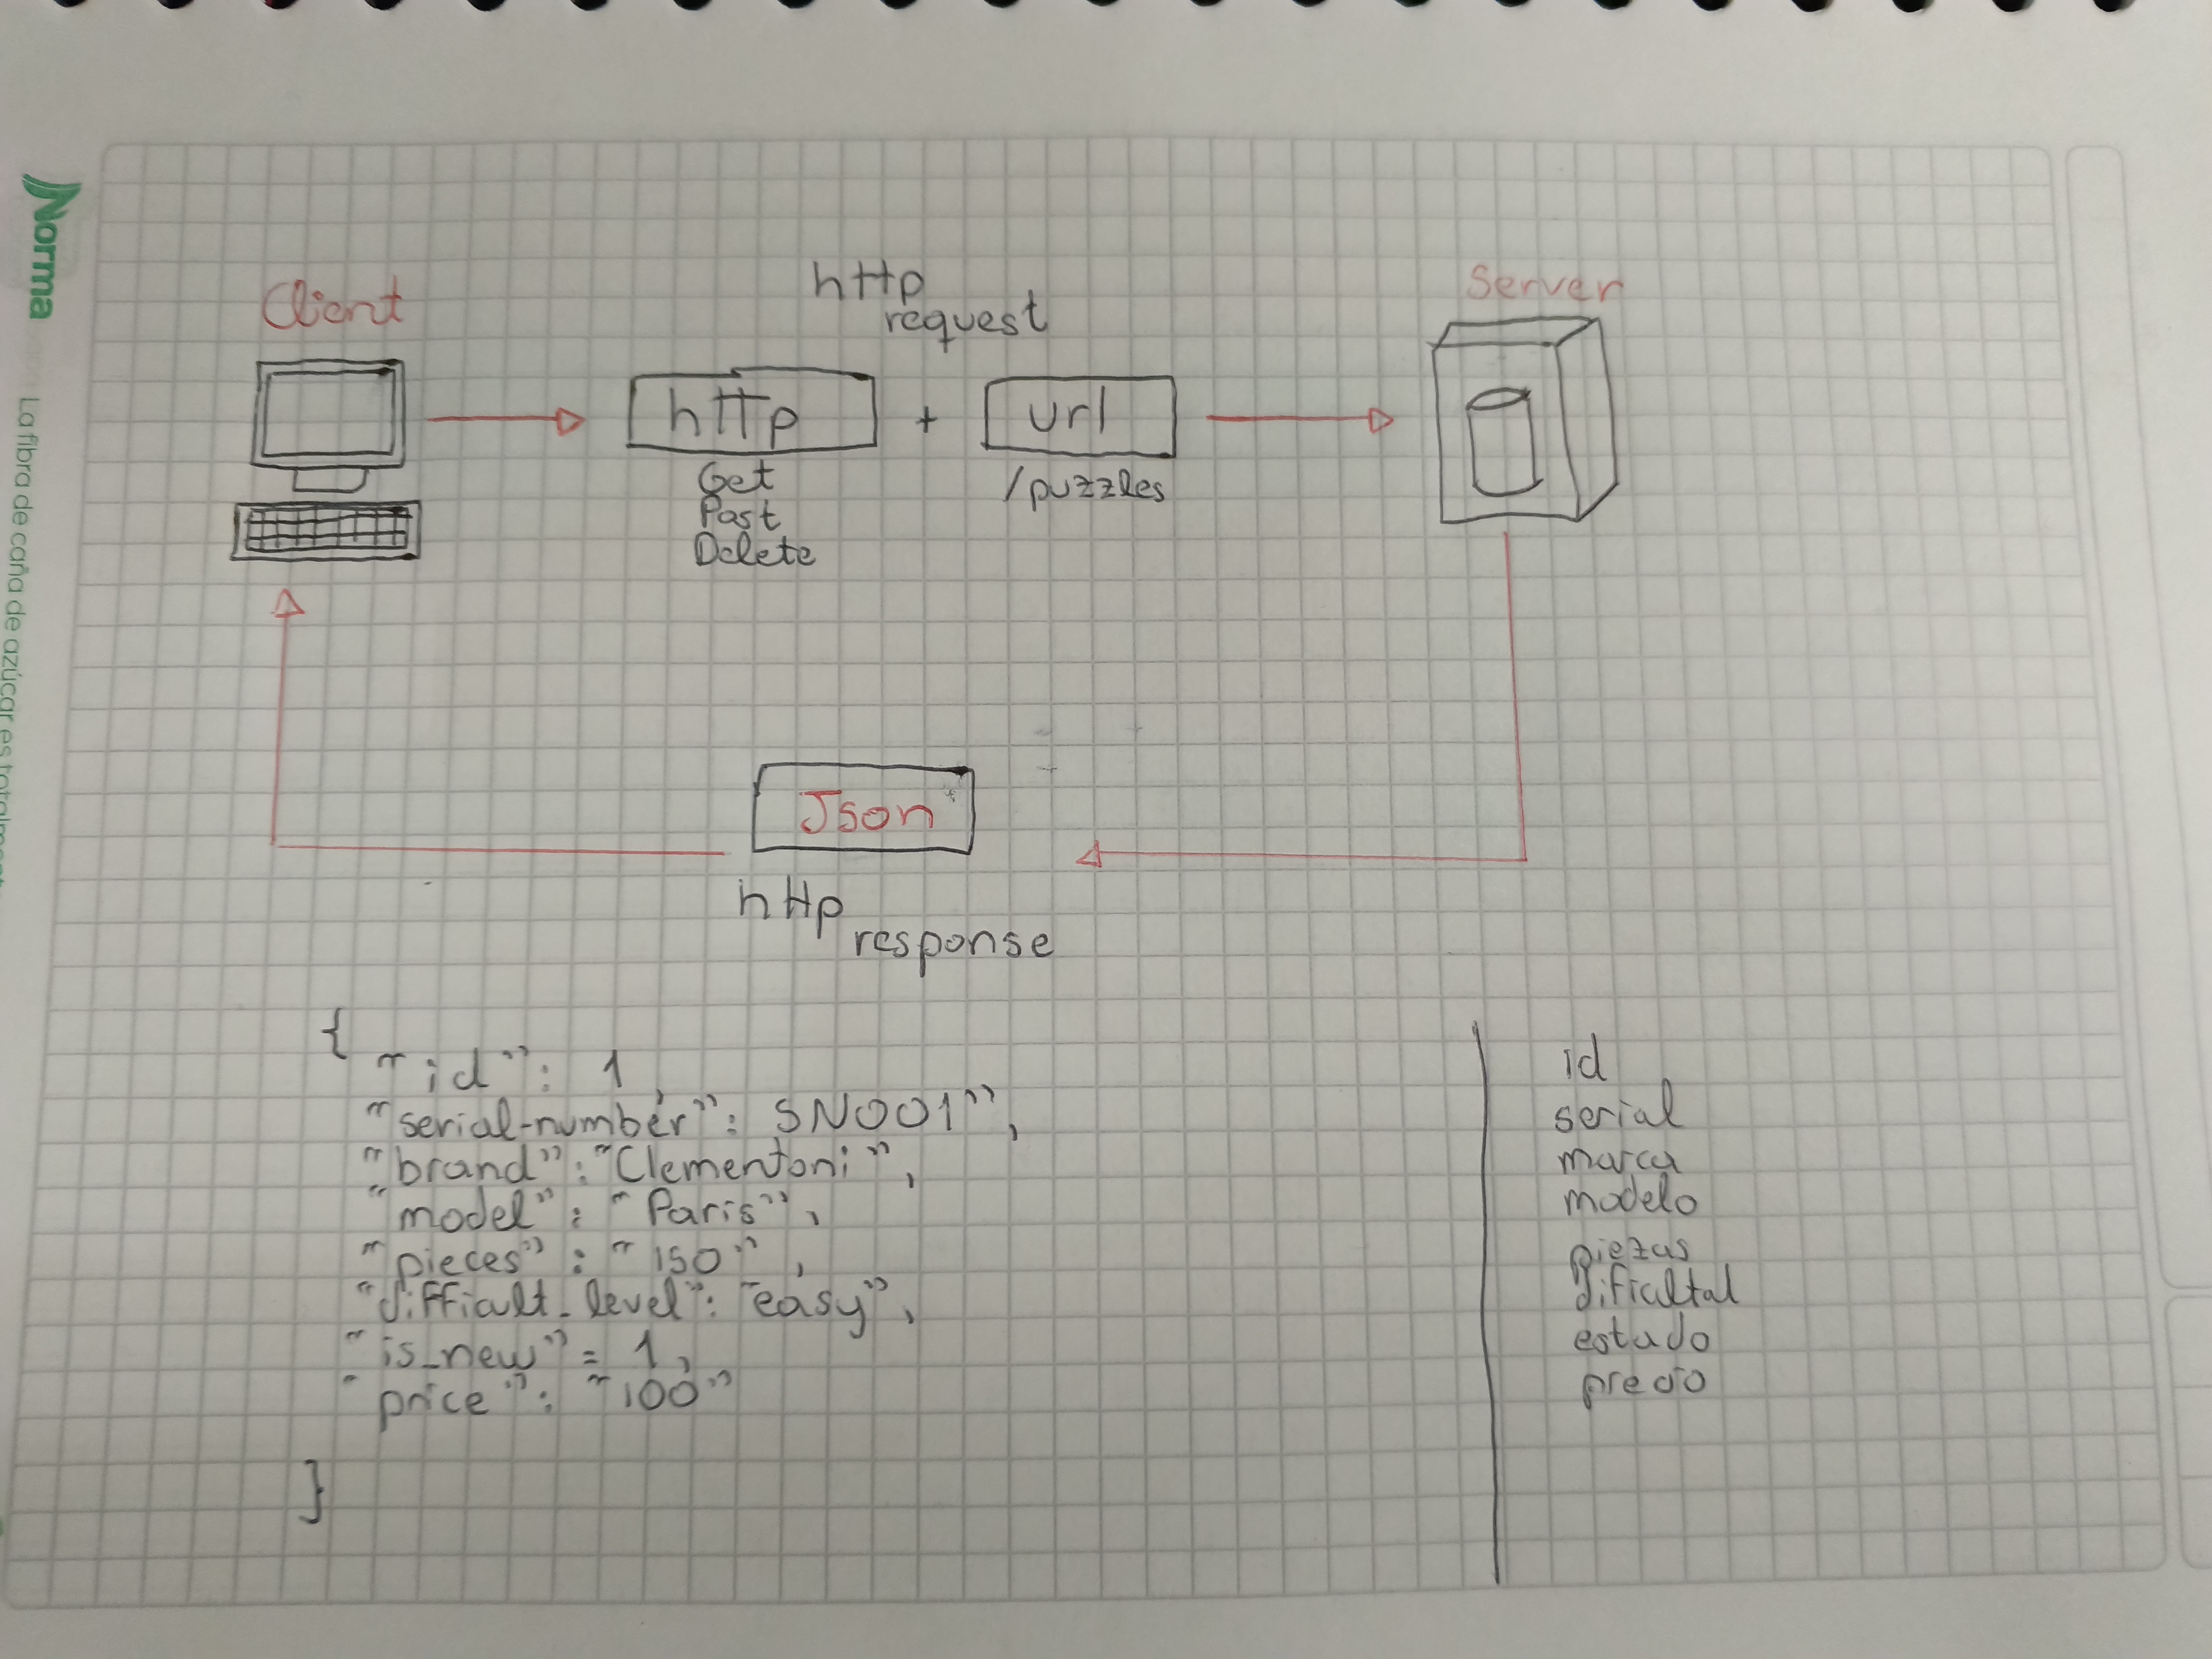 Norma
La fibra de caña de azúcar es
Client
http
request
Server
http
+
url
Get
Post
Delete
/puzzles
Json
http
response
{
"id": 1,
"serial-number": SN001",
"brand": "Clementoni",
"model": "Paris",
"pieces": "150",
"difficult_level": "easy",
"is_new" = 1,
"price": "100"
}
id
serial
marca
modelo
piezas
dificultal
estado
precio